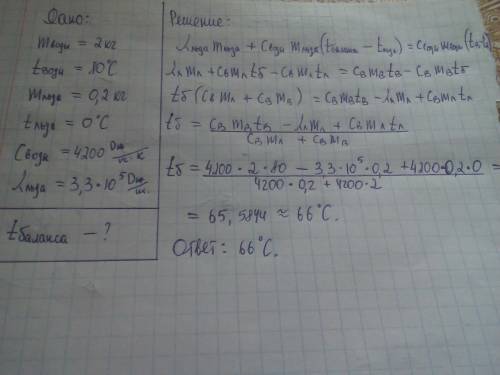 Дано:
mводы = 2 кг
tводы = 80°C
mльда = 0,2 кг
tльда = 0°C
Cводы = 4200 Дж/кг·К
λльда = 3,3·10⁵ Дж/кг
tбаланса – ?
Решение:
λльда mльда + Cводы mльда (tбаланса – tльда) = Cводы mводы (tв-tб)
λл mл + Cв mл tб – Cв mл tл = Cв mв tв – Cв mв tб
tб (Cв mл + Cв mв) = Cв mв tв – λл mл + Cв mл tл
tб = (Cв mв tв – λл mл + Cв mл tл) / (Cв mл + Cв mв)
tб = (4200·2·80 – 3,3·10⁵·0,2 + 4200·0,2·0) / (4200·0,2 + 4200·2) =
= 65,5844 ≈ 66°C.
Ответ: 66°C.